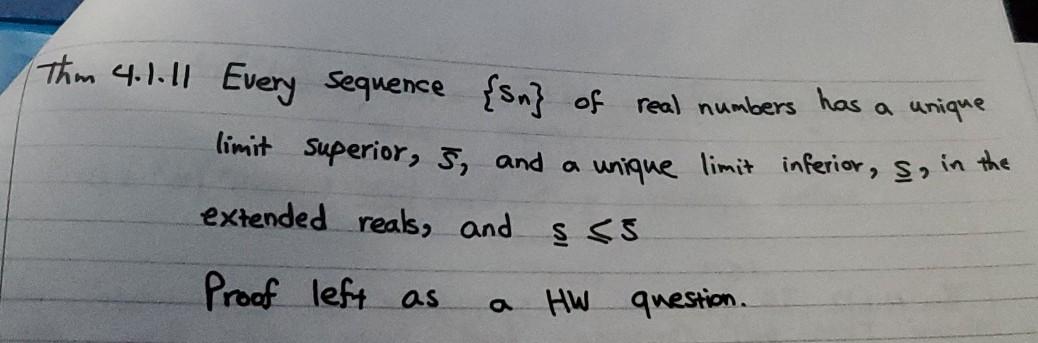 Thm 4.1.11 Every sequence {sₙ} of real numbers has a unique
limit superior, s̅, and a unique limit inferior, s̲, in the
extended reals, and s̲ ⩽ s̅
Proof left as a HW question.